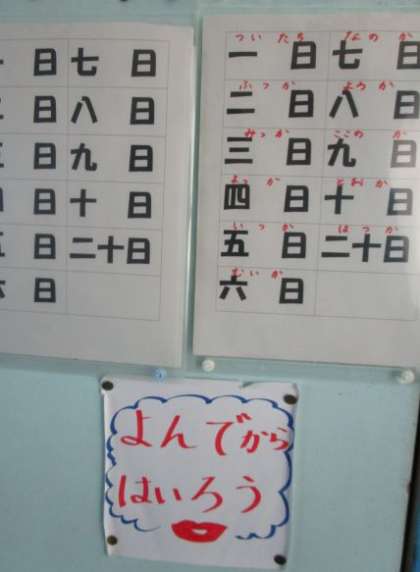 日 七 日
日 八 日
日 九 日
日 十 日
日 二十日
日
ついたち なのか
一 日 七 日
ふつか ようか
二 日 八 日
みっか ここのか
三 日 九 日
よっか とおか
四 日 十 日
いつか はつか
五 日 二十日
むいか
六 日
よんでから
はいろう